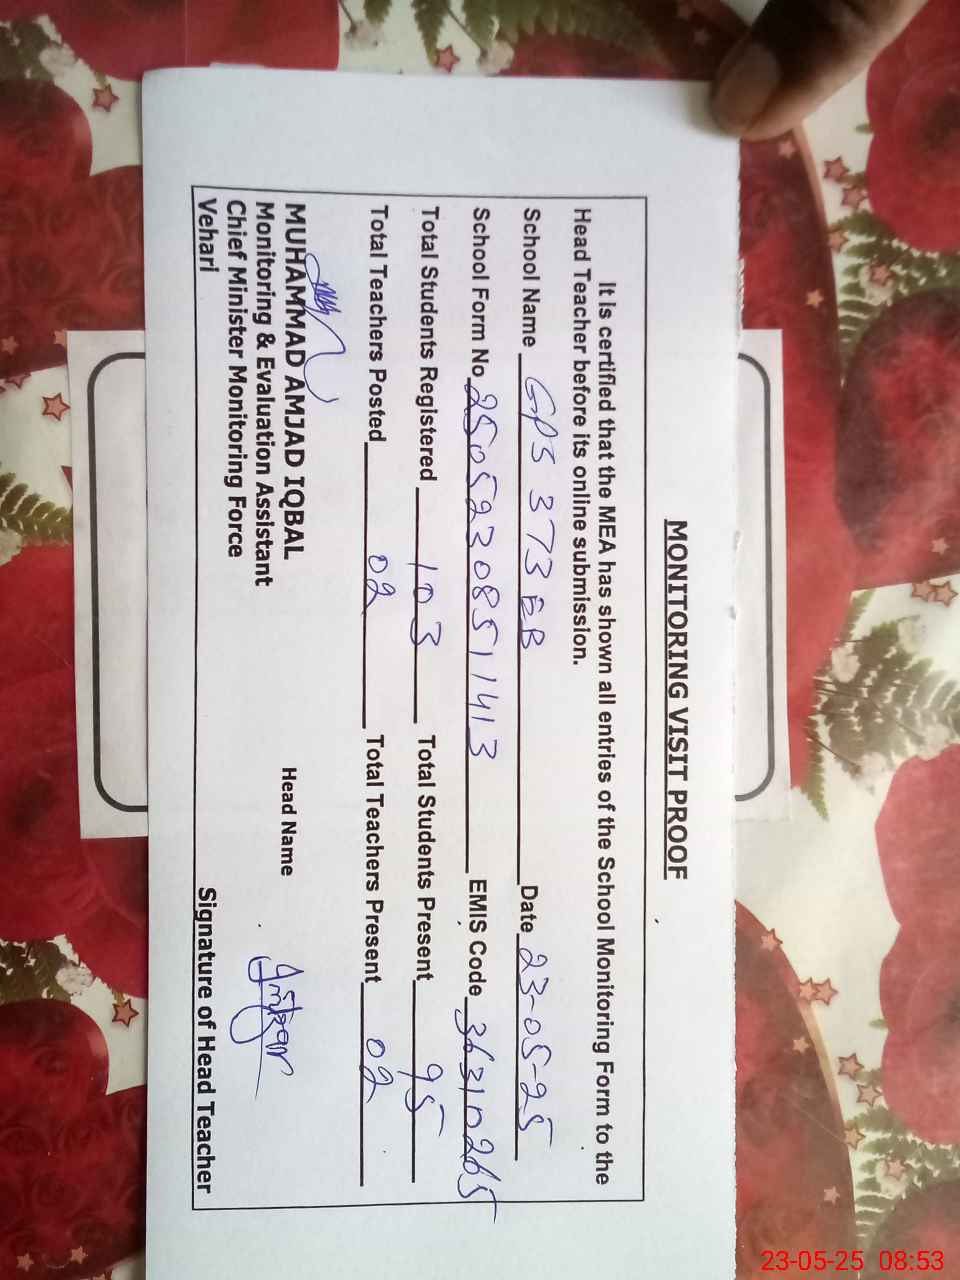 MONITORING VISIT PROOF
It is certified that the MEA has shown all entries of the School Monitoring Form to the
Head Teacher before its online submission.
School Name GPS 373 EB Date 23-05-25
School Form No 2505230851413 EMIS Code 36310265
Total Students Registered 103 Total Students Present 95
Total Teachers Posted 02 Total Teachers Present 02
MUHAMMAD AMJAD IQBAL Head Name
Monitoring & Evaluation Assistant
Chief Minister Monitoring Force
Vehari Signature of Head Teacher
23-05-25 08:53